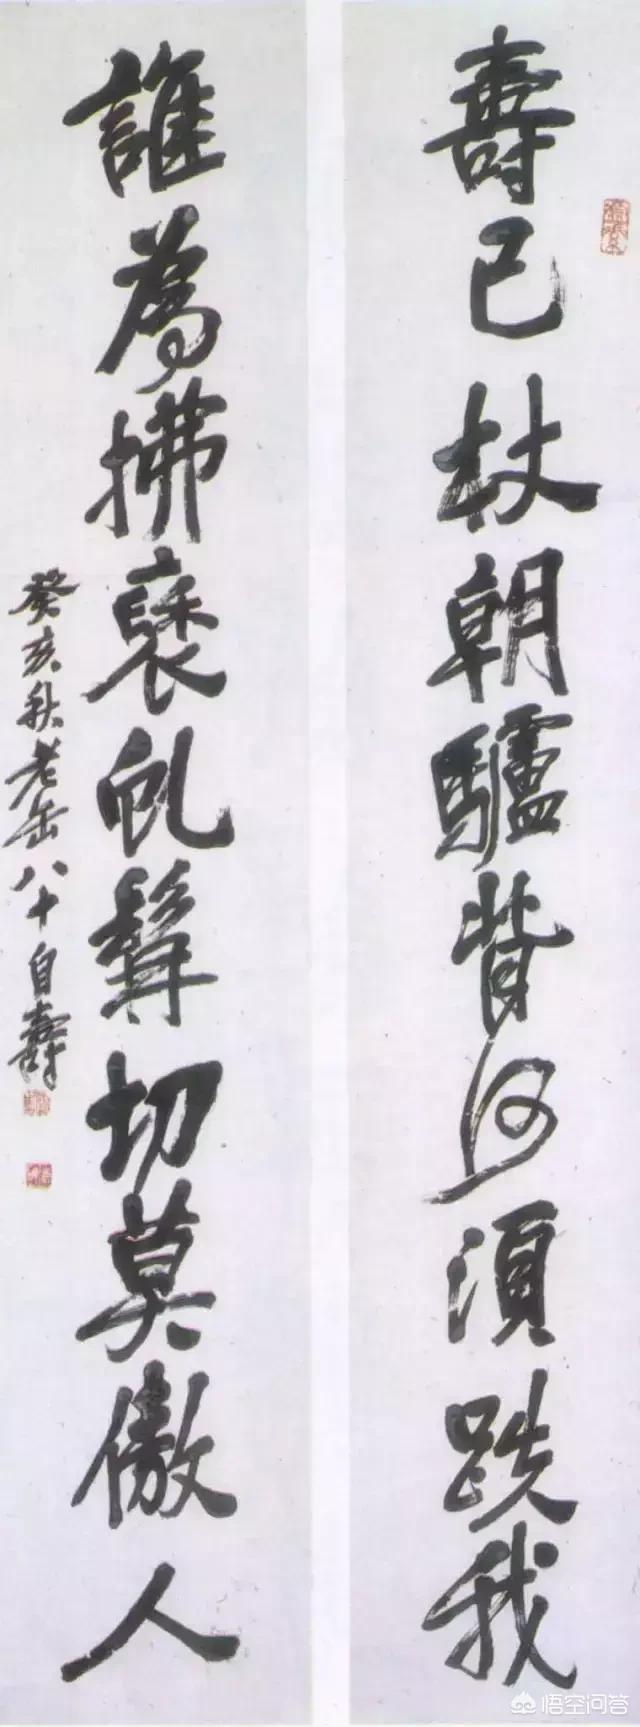 壽已杖朝驢背何須跌我
誰為拂褎虬髯切莫傲人
癸亥秋老缶八十自壽
悟空问答